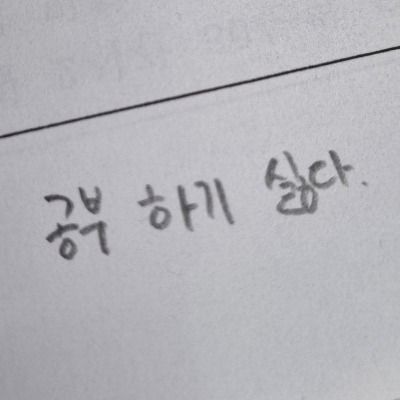 공부 하기 싫다.